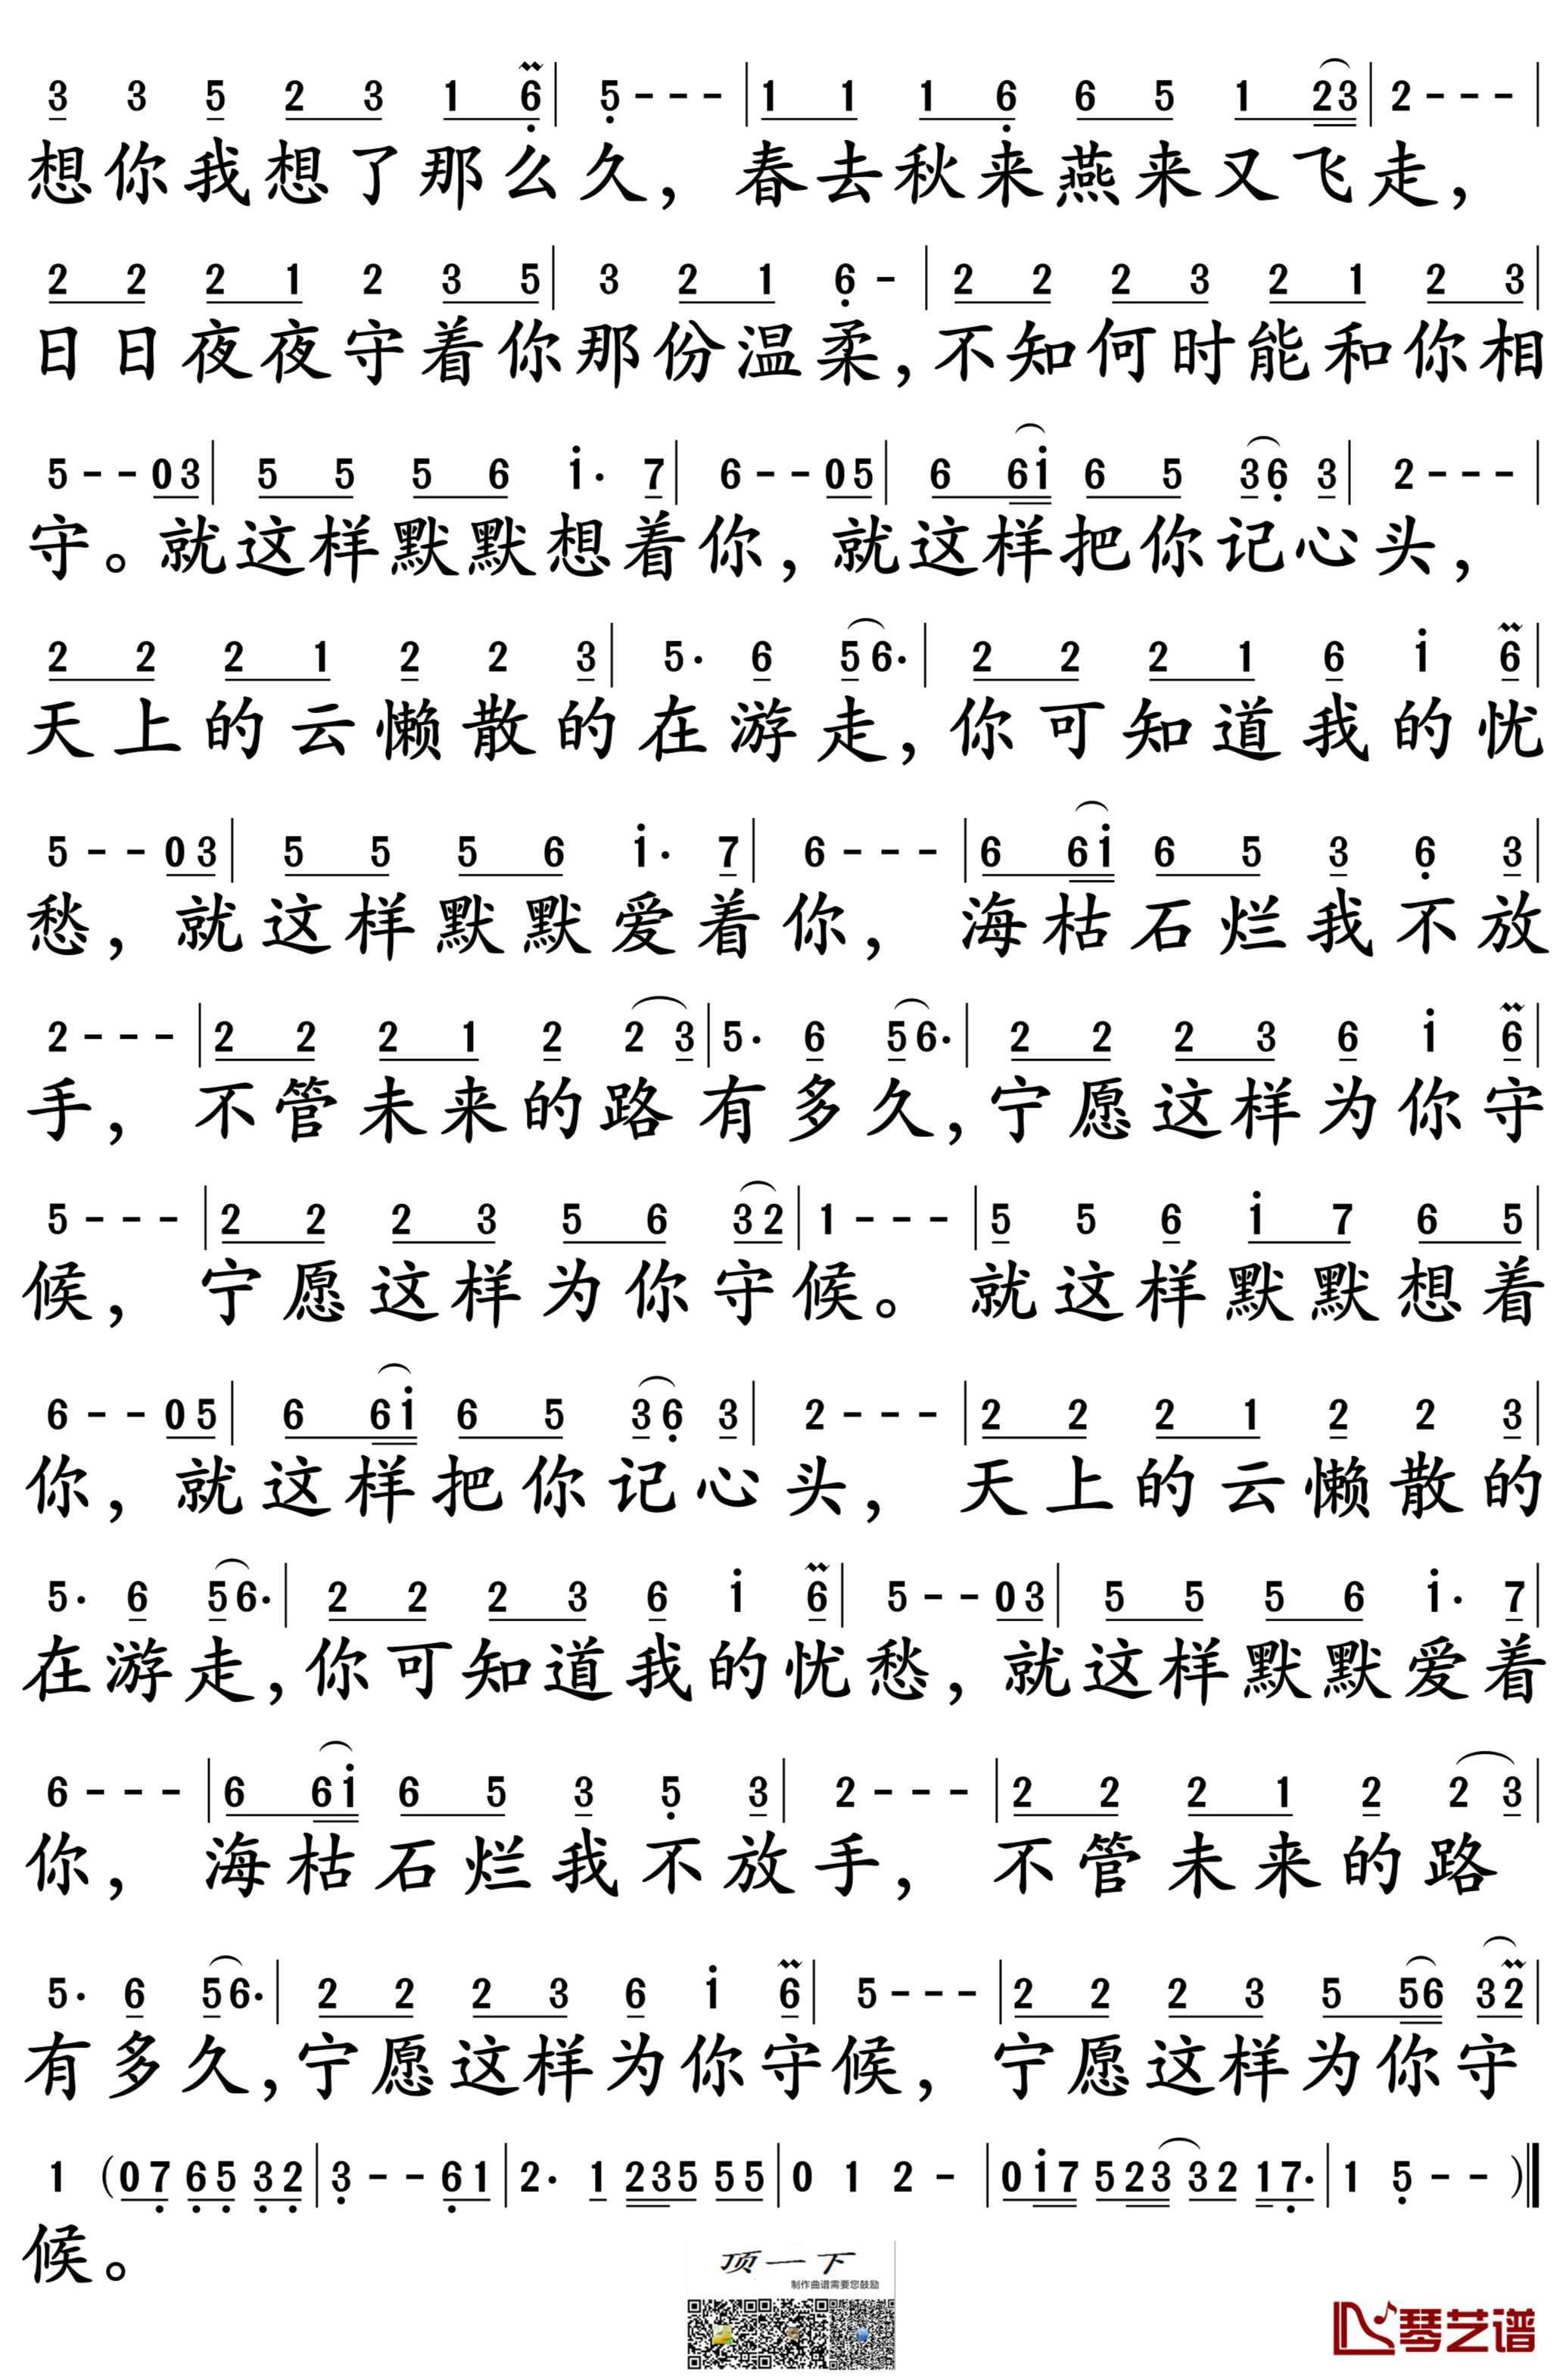 3 3 5 2 3 1 6̣ | 5̣ - - - | 1 1 1 6̣ 6 5 1 23 | 2 - - - |
想你我想了那么久，春去秋来燕来又飞走，
2 2 2 1 2 3 5 | 3 2 1 6̣ - | 2 2 2 3 2 1 2 3 |
日日夜夜守着你那份温柔，不知何时能和你相
5 - - 0 3 | 5 5 5 6 i· 7 | 6 - - 0 5 | 6 6i 6 5 36̣ 3 | 2 - - - |
守。就这样默默想着你，就这样把你记心头，
2 2 2 1 2 2 3 | 5· 6 56· | 2 2 2 1 6 i 6 |
天上的云懒散的在游走，你可知道我的忧
5 - - 0 3 | 5 5 5 6 i· 7 | 6 - - - | 6 6i 6 5 3 6̣ 3 |
愁，就这样默默爱着你，海枯石烂我不放
2 - - - | 2 2 2 1 2 2 3 | 5· 6 56· | 2 2 2 3 6 i 6 |
手，不管未来的路有多久，宁愿这样为你守
5 - - - | 2 2 2 3 5 6 32 | 1 - - - | 5 5 6 i 7 6 5 |
候，宁愿这样为你守候。就这样默默想着
6 - - 0 5 | 6 6i 6 5 36̣ 3 | 2 - - - | 2 2 2 1 2 2 3 |
你，就这样把你记心头，天上的云懒散的
5· 6 56· | 2 2 2 3 6 i 6 | 5 - - 0 3 | 5 5 5 6 i· 7 |
在游走，你可知道我的忧愁，就这样默默爱着
6 - - - | 6 6i 6 5 3 5̣ 3 | 2 - - - | 2 2 2 1 2 2 3 |
你，海枯石烂我不放手，不管未来的路
5· 6 56· | 2 2 2 3 6 i 6 | 5 - - - | 2 2 2 3 5 56 32 |
有多久，宁愿这样为你守候，宁愿这样为你守
1 (0 7̣ 6̣5̣ 3̣2̣ | 3̣ - - 6̣1 | 2· 1 235 55 | 0 1 2 - | 0i7 523 32 17̣· | 1 5̣ - - )‖
候。
顶一下
制作曲谱需要您鼓励
琴艺谱